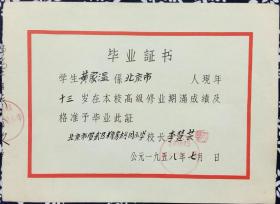 毕业証书
学生黄家温 係北京市 人現年
十三 岁在本校高級修业期滿成績及
格准予毕业此証
北京市宣武区 小学校長李
公元一九五八年七月 日